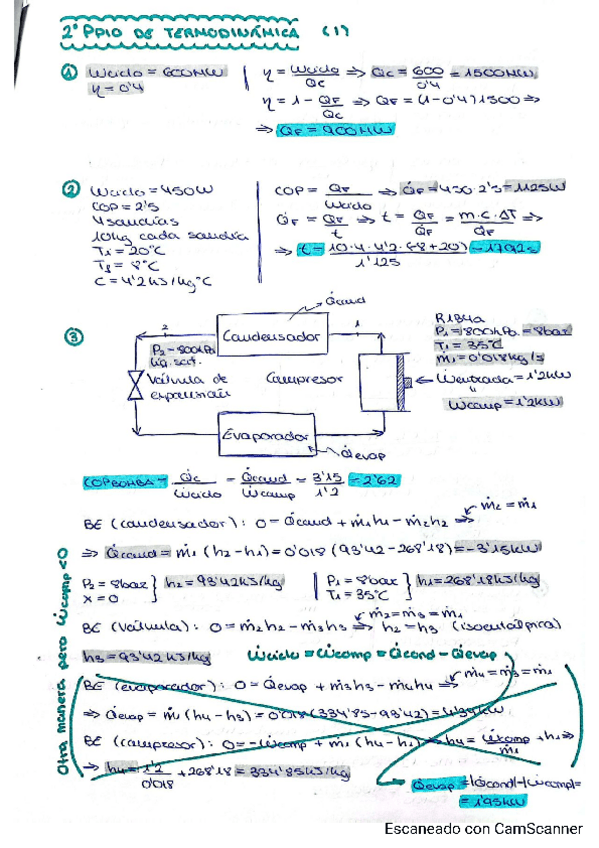 2º PPIO DE TERMODINÁMICA (1)
① Ẇciclo = 600MW
η = 0'4
η = Ẇciclo/Q̇c ⇒ Q̇c = 600/0'4 = 1500MW
η = 1 - Q̇F/Q̇c ⇒ Q̇F = (1-0'4)1500 ⇒
⇒ Q̇F = 900MW
② Ẇciclo = 450W
COP = 2'5
4 sandías
10kg cada sandía
T1 = 20°C
Tf = 8°C
C = 4'2 kJ/kg°C
COP = Q̇F/Ẇciclo ⇒ Q̇F = 450·2'5 = 1125W
Q̇F = QF/t ⇒ t = QF/Q̇F = m·c·ΔT/Q̇F ⇒
⇒ t = 10·4·4'2·(-8+20)/1'125 = 1792s
③
Q̇cond
2
Condensador
1
P2 = 800kPa
líq. sat.
Válvula de
expansión
Compresor
Evaporador
Q̇evap
R134a
P1 = 800kPa = 8bar
T1 = 35°C
ṁ1 = 0'018kg/s
Ẇentrada = 1'2kW
"
Ẇcomp = 1'2kW
COPBOMBA = Q̇c/Ẇciclo = Q̇cond/Ẇcomp = 3'15/1'2 = 2'62
ṁ2 = ṁ1
BE (condensador): 0 = Q̇cond + ṁ1h1 - ṁ2h2 ⇒
⇒ Q̇cond = ṁ1 (h2-h1) = 0'018 (93'42-268'18) = -3'15kW
P2 = 8bar
x = 0
} h2 = 93'42kJ/kg
P1 = 8bar
T1 = 35°C
} h1 = 268'18kJ/kg
ṁ2 = ṁ3 = ṁ1
BE (Válvula): 0 = ṁ2h2 - ṁ3h3 ⇒ h2 = h3 (isoentálpica)
h3 = 93'42 kJ/kg
Ẇciclo = Ẇcomp = Q̇cond - Q̇evap
ṁ4 = ṁ3 = ṁ1
BE (evaporador): 0 = Q̇evap + ṁ3h3 - ṁ4h4 ⇒
⇒ Q̇evap = ṁ1 (h4-h3) = 0'018 (334'85-93'42) = 4'34kW
BE (compresor): 0 = -Ẇcomp + ṁ1 (h4-h1) ⇒ h4 = Ẇcomp/ṁ1 + h1 ⇒
⇒ h4 = 1'2/0'018 + 268'18 = 334'85kJ/kg
Q̇evap = |Q̇cond| - |Ẇcomp| =
= 1'95kW
Otra manera pero Ẇcomp<0
Escaneado con CamScanner